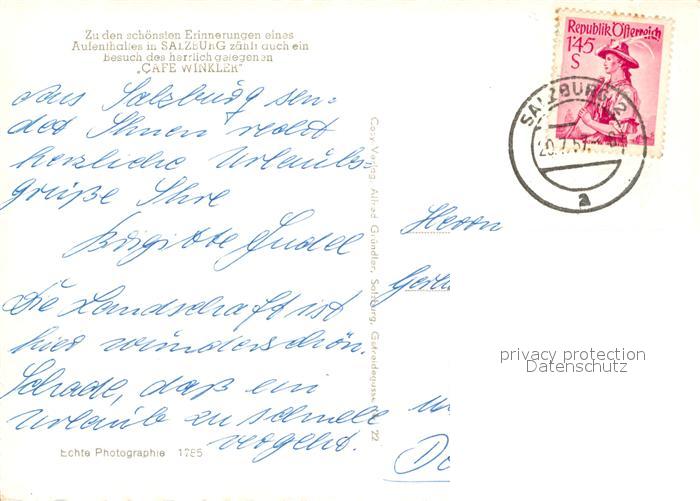 Zu den schönsten Erinnerungen eines
Aufenthaltes in SALZBURG zählt auch ein
besuch des herrlich gelegenen
„CAFE WINKLER"
Aus Salzburg sen-
det Ihnen recht
herzliche Urlaubs-
grüße Ihre
Brigitte
Die Landschaft ist
hier wunderschön.
Schade, daß ein
Urlaub zu schnell
vergeht.
Echte Photographie 1785
Cosy-Verlag Alfred Gründler, Salzburg, Getreidegasse 22
Republik Österreich
1'45
S
SALZBURG 2
20.7.57
a
Herrn
privacy protection
Datenschutz